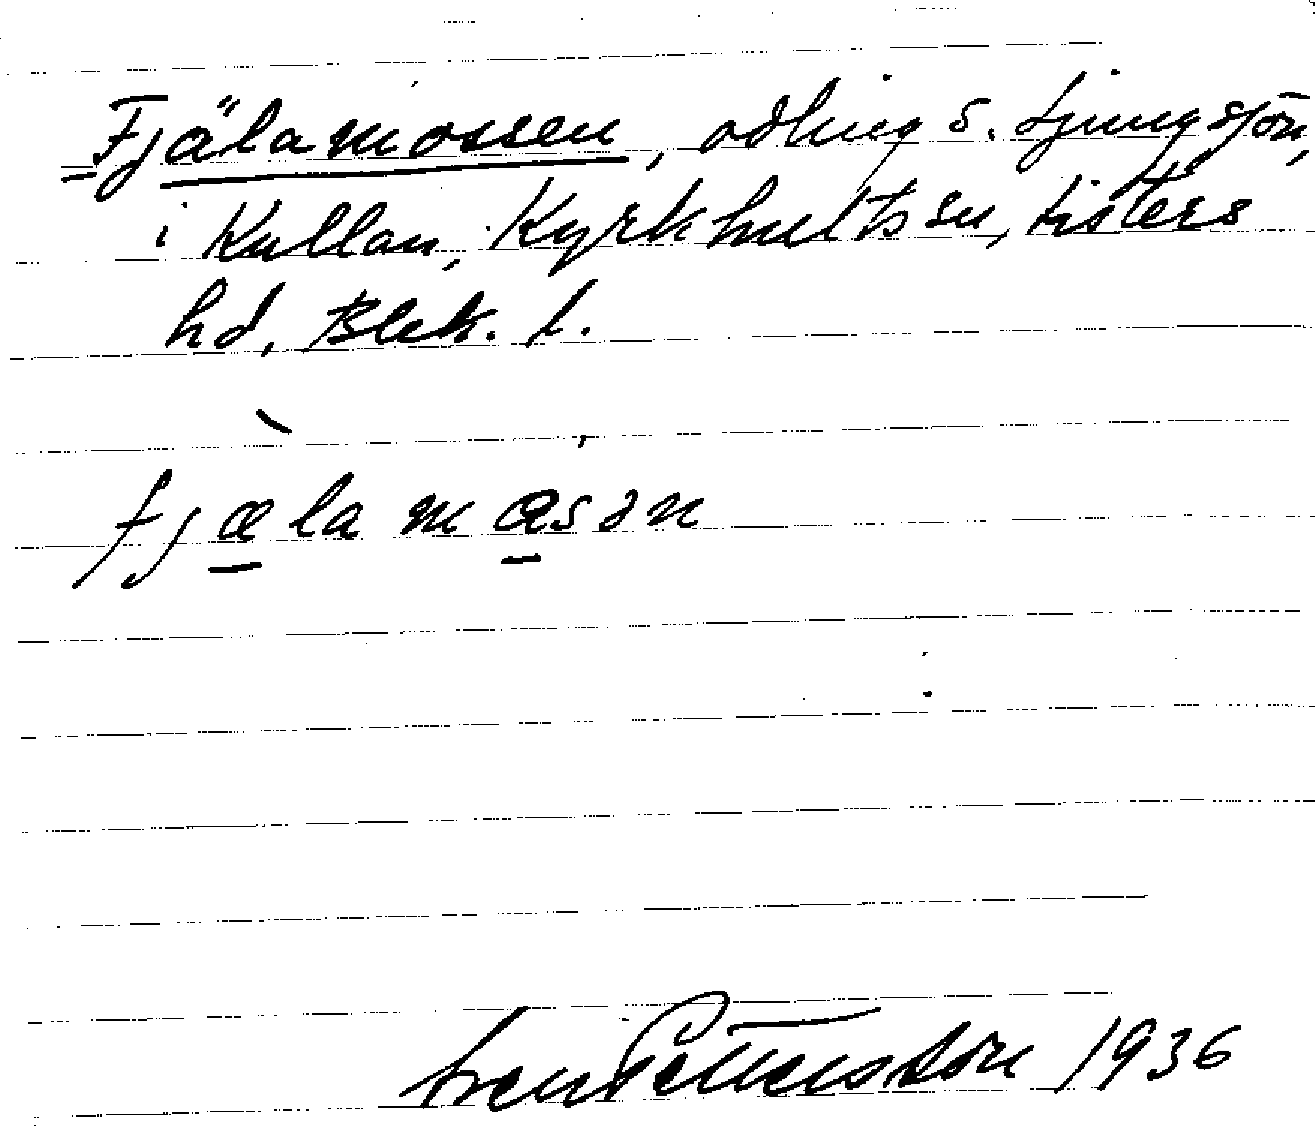 Fjälamossen, odling s. Ljungsjön,
i Kullan, Kyrkhults sn, Listers
hd, Blek. l.
fjælamasən
Sven Pettersson 1936